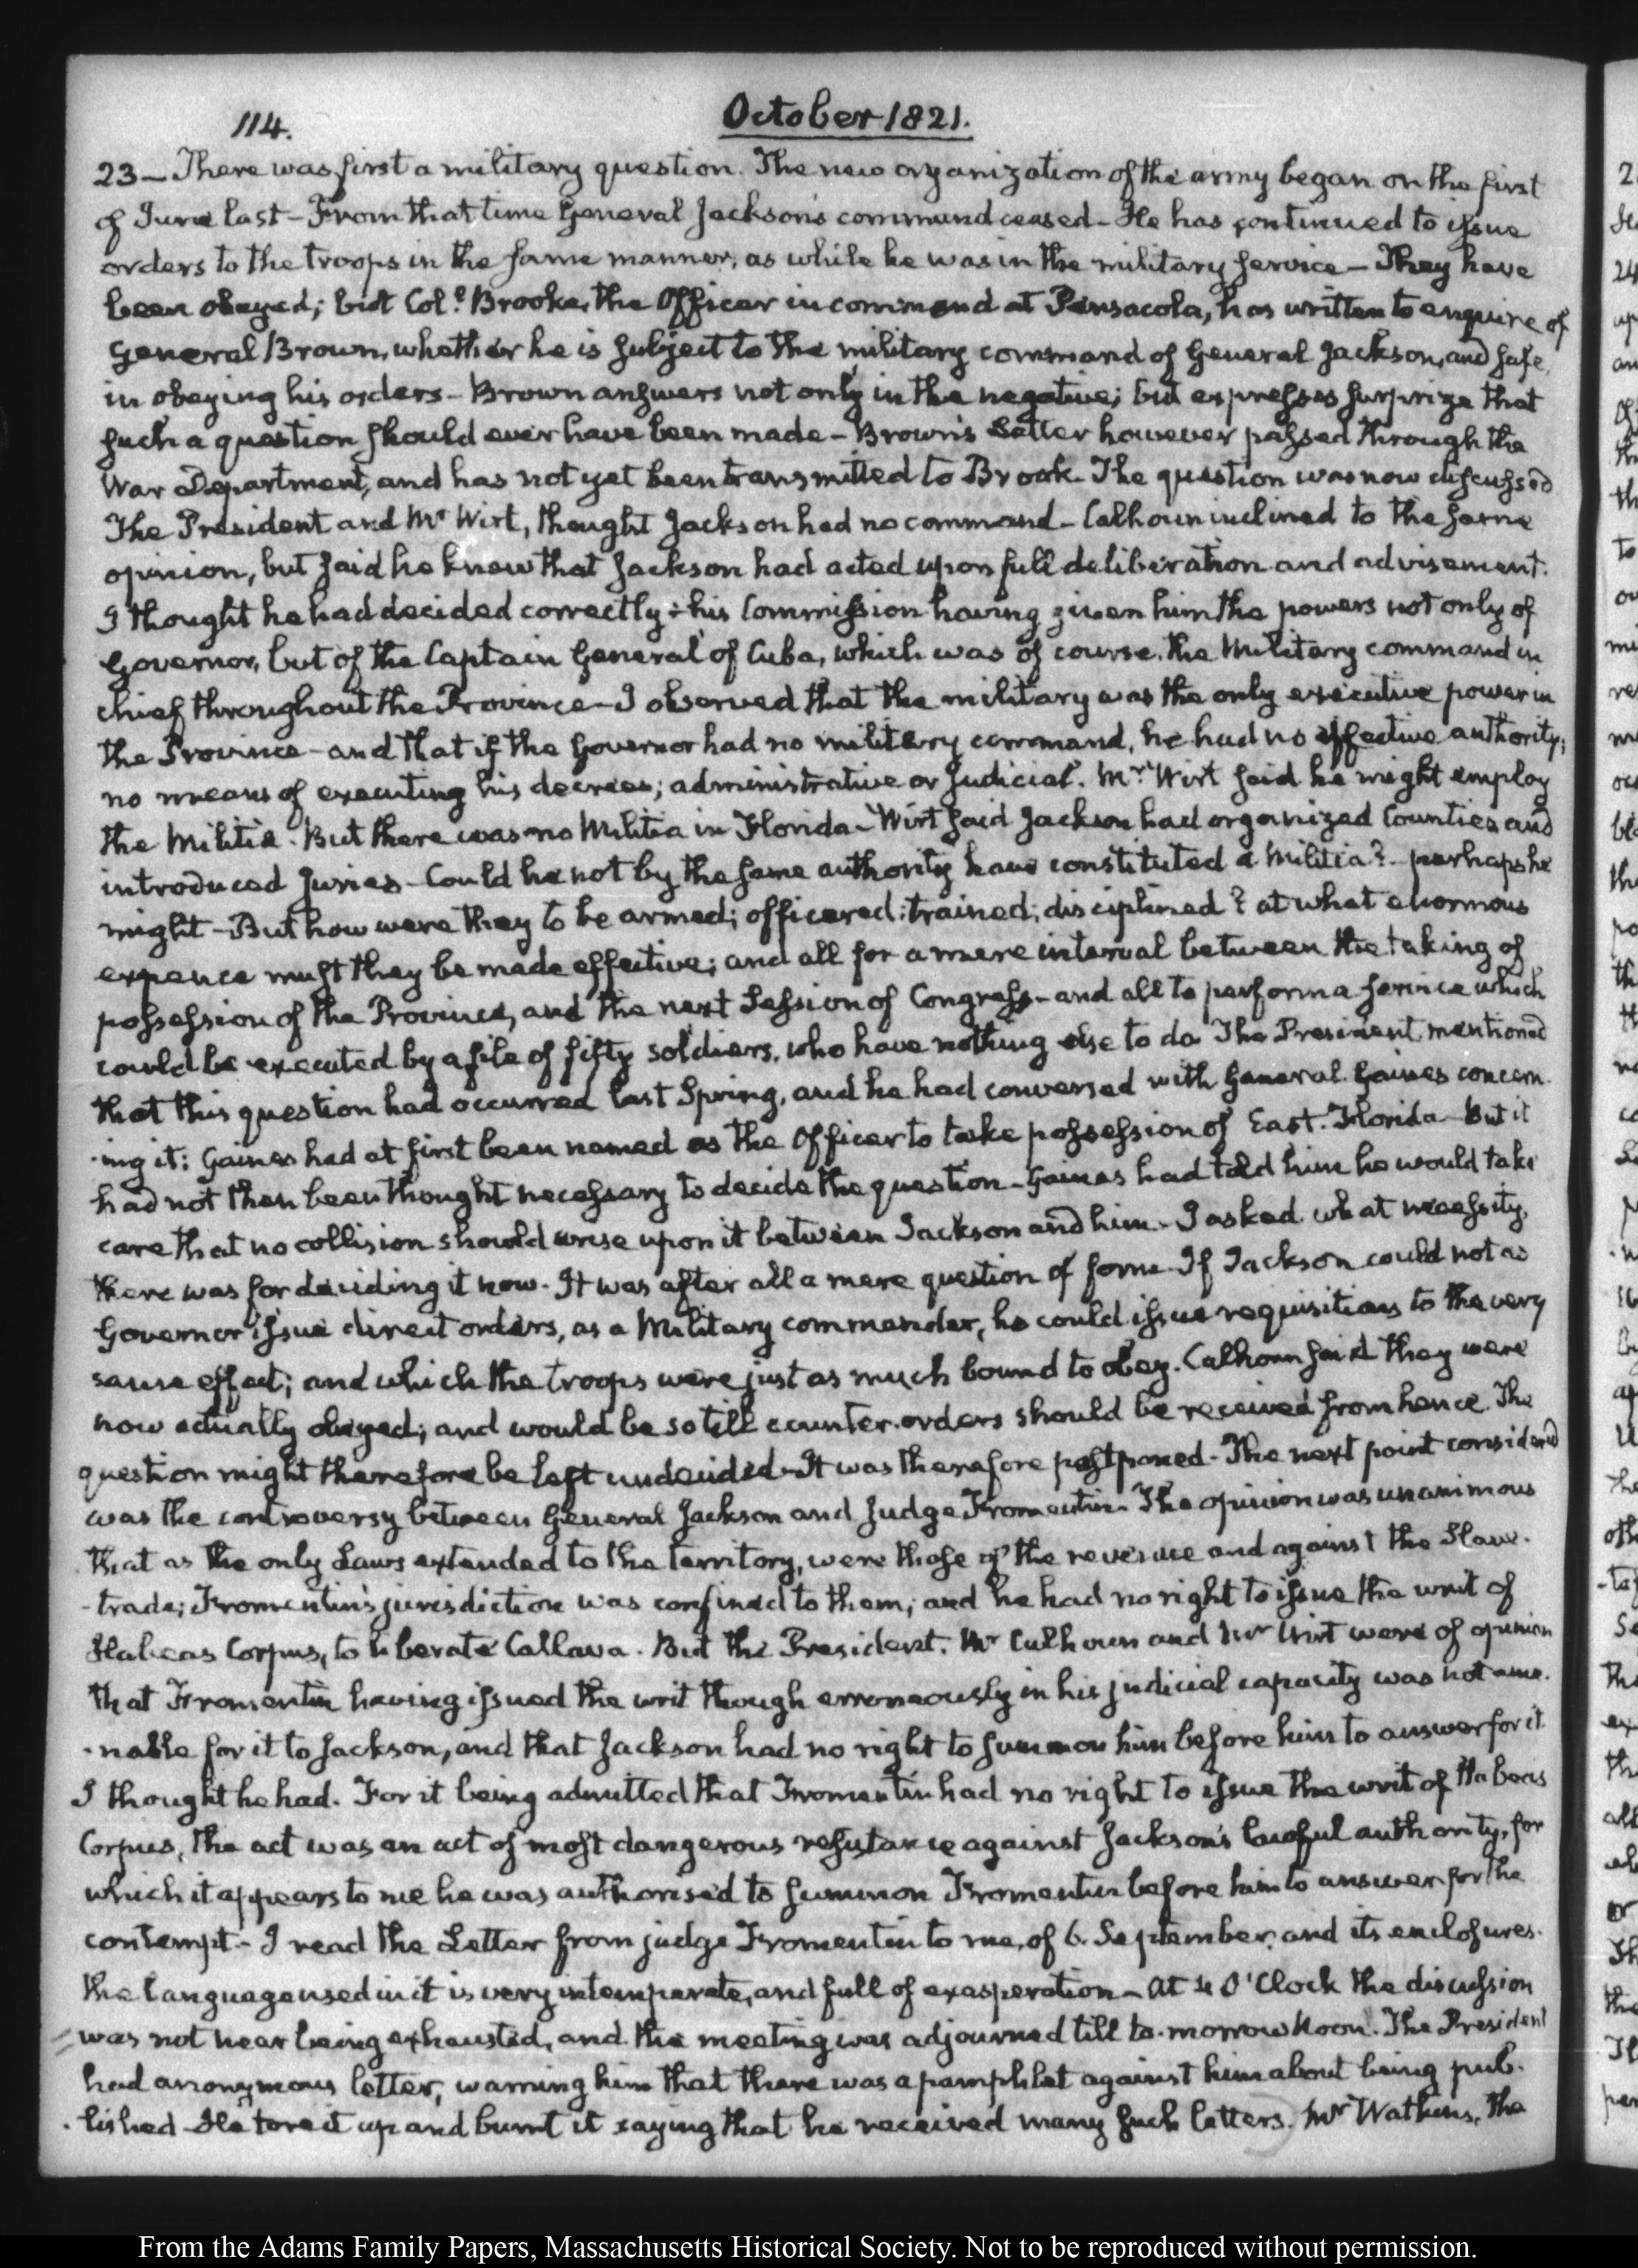 114.
October 1821.
23 – There was first a military question. The new organization of the army began on the first
of June last – From that time General Jackson's command ceased – He has continued to issue
orders to the troops in the same manner, as while he was in the military service – They have
been obeyed; but Col.º Brooke, the Officer in command at Pensacola, has written to enquire of
General Brown, whether he is subject to the military command of General Jackson, and safe
in obeying his orders – Brown answers not only in the negative; but expresses surprize that
such a question should ever have been made – Brown's Letter however passed through the
War Department, and has not yet been transmitted to Brook. The question was now discussed
The President and Mr Wirt, thought Jackson had no command – Calhoun inclined to the same
opinion, but said he knew that Jackson had acted upon full deliberation and advisement.
I thought he had decided correctly: his Commission having given him the powers not only of
Governor, but of the Captain General of Cuba, which was of course, the Military command in
chief throughout the Province – I observed that the military was the only executive power in
the Province – and that if the Governor had no military command, he had no effective authority;
no means of executing his decrees; administrative or judicial. Mr Wirt said he might employ
the Militia. But there was no Militia in Florida – Wirt said Jackson had organized Counties and
introduced Juries – Could he not by the same authority have constituted a Militia? – perhaps he
might – But how were they to be armed; officered; trained; disciplined? at what enormous
expence must they be made effective; and all for a mere interval between the taking of
possession of the Province, and the next Session of Congress – and all to perform a service which
could be executed by a file of fifty soldiers, who have nothing else to do The President mentioned
that this question had occurred last Spring, and he had conversed with General Gaines concern
-ing it: Gaines had at first been named as the Officer to take possession of East-Florida – But it
had not then been thought necessary to decide the question – Gaines had told him he would take
care that no collision should arise upon it between Jackson and him – I asked what necessity,
there was for deciding it now. It was after all a mere question of form – If Jackson could not as
Governor issue direct orders, as a Military commander, he could issue requisitions to the very
same effect; and which the troops were just as much bound to obey. Calhoun said they were
now actually obeyed; and would be so till counter-orders should be received from hence. The
question might therefore be left undecided – It was therefore postponed – The next point considered
was the controversy between General Jackson and Judge Fromentin – The opinion was unanimous
that as the only Laws extended to the Territory, were those of the revenue and against the Slave-
-trade; Fromentin's jurisdiction was confined to them; and he had no right to issue the writ of
Habeas Corpus, to liberate Callava. But the President, Mr Calhoun and Mr Wirt were of opinion
that Fromentin having issued the writ though erroneously in his judicial capacity was not ame-
-nable for it to Jackson, and that Jackson had no right to summon him before him to answer for it
I thought he had. For it being admitted that Fromentin had no right to issue the writ of Habeas
Corpus, the act was an act of most dangerous resistance against Jackson's lawful authority, for
which it appears to me he was authorised to summon Fromentin before him to answer for the
contempt – I read the Letter from judge Fromentin to me, of 6. September, and its enclosures.
the language used in it is very intemperate, and full of exasperation – At 4 O'Clock the discussion
was not near being exhausted, and the meeting was adjourned till to-morrow Noon. The President
had anonymous letter, warning him that there was a pamphlet against him about being pub-
-lished – He tore it up and burnt it saying that he received many such letters. Mr Watkins, the
From the Adams Family Papers, Massachusetts Historical Society. Not to be reproduced without permission.